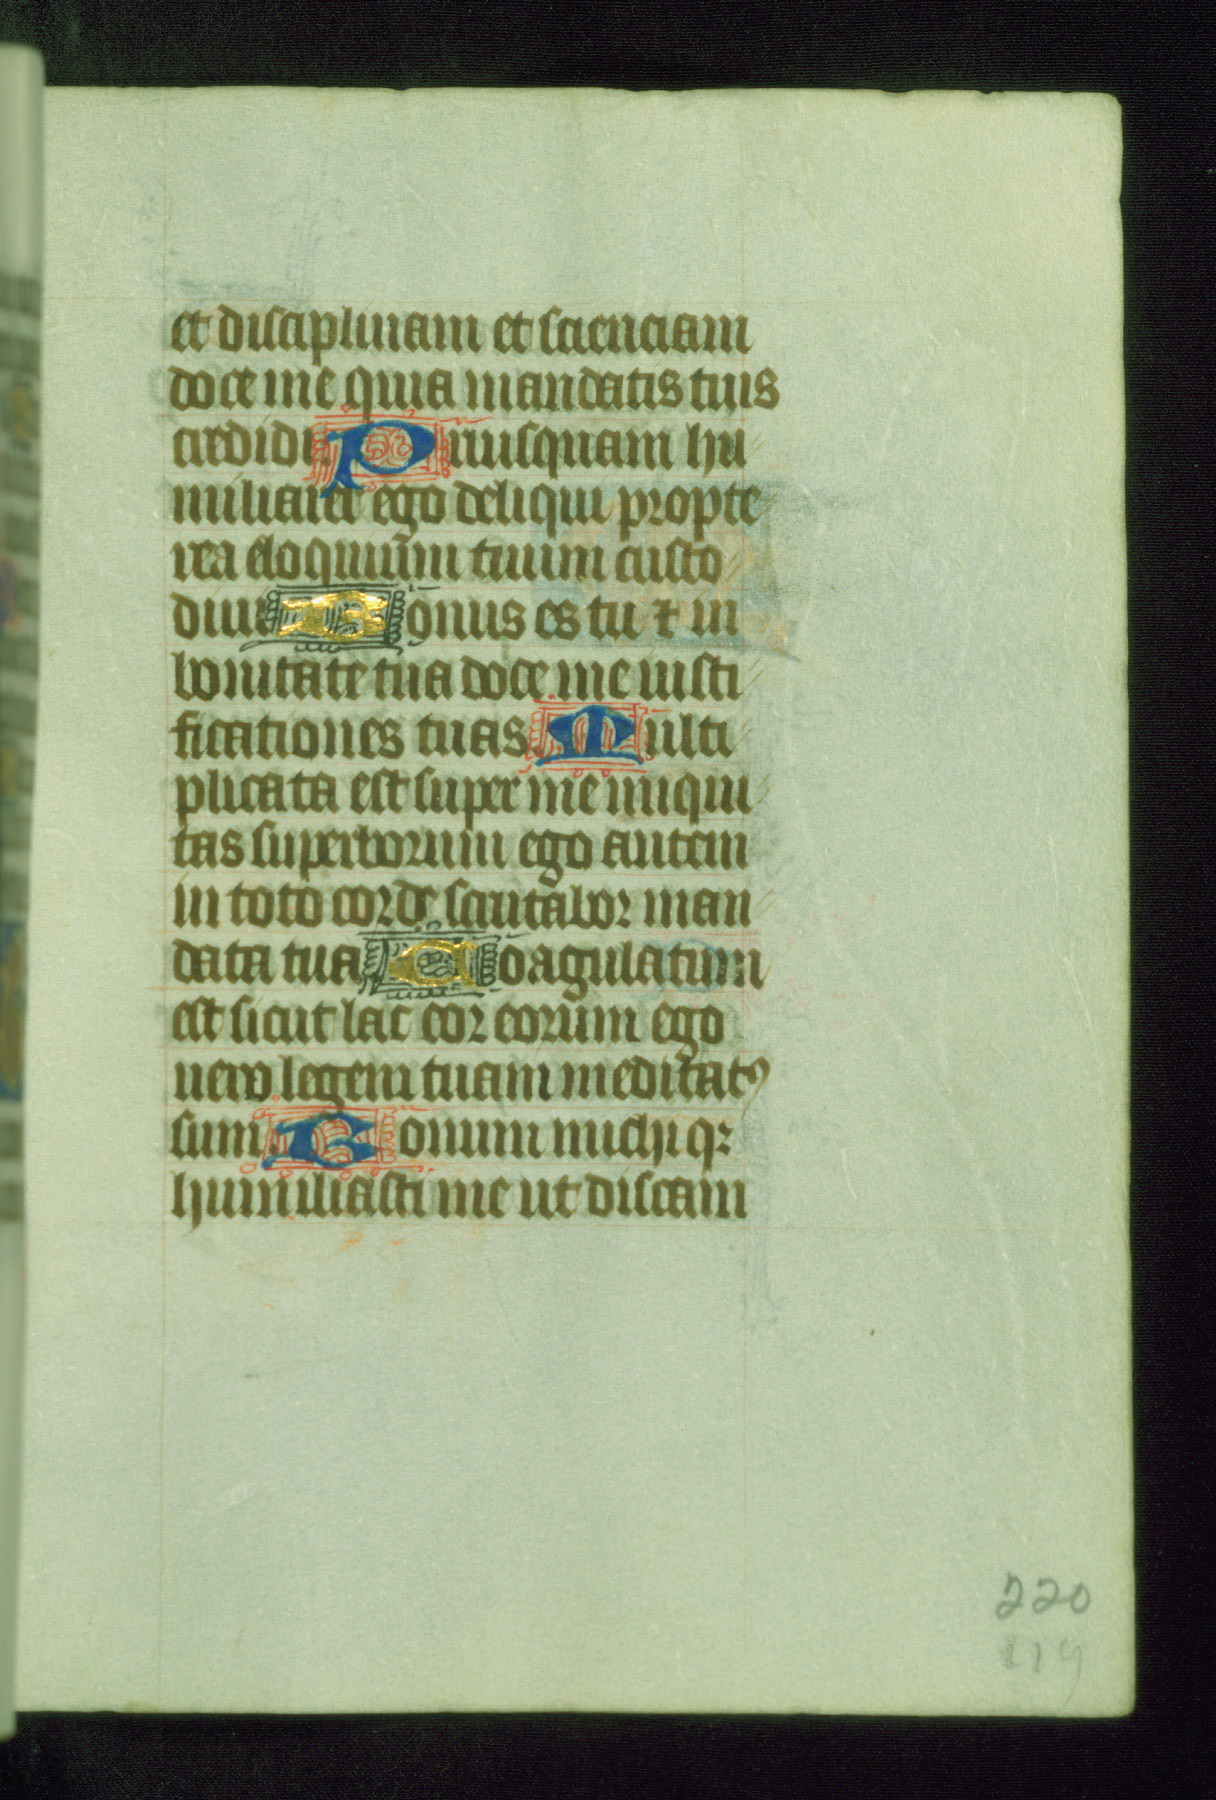 et disciplinam et scienciam
doce me quia mandatis tuis
credidi. Priusquam hu
miliarer ego deliqui propte
rea eloquium tuum custo
diui Bonus es tu ⁊ in
bonitate tua doce me iusti
ficationes tuas. Multi
plicata est super me iniqui
tas superborum ego autem
in toto corde scrutabor man
data tua. Coagulatum
est sicut lac cor eorum ego
uero legem tuam meditatꝰ
sum. Bonum michi qꝛ
humiliasti me ut discam
220
219